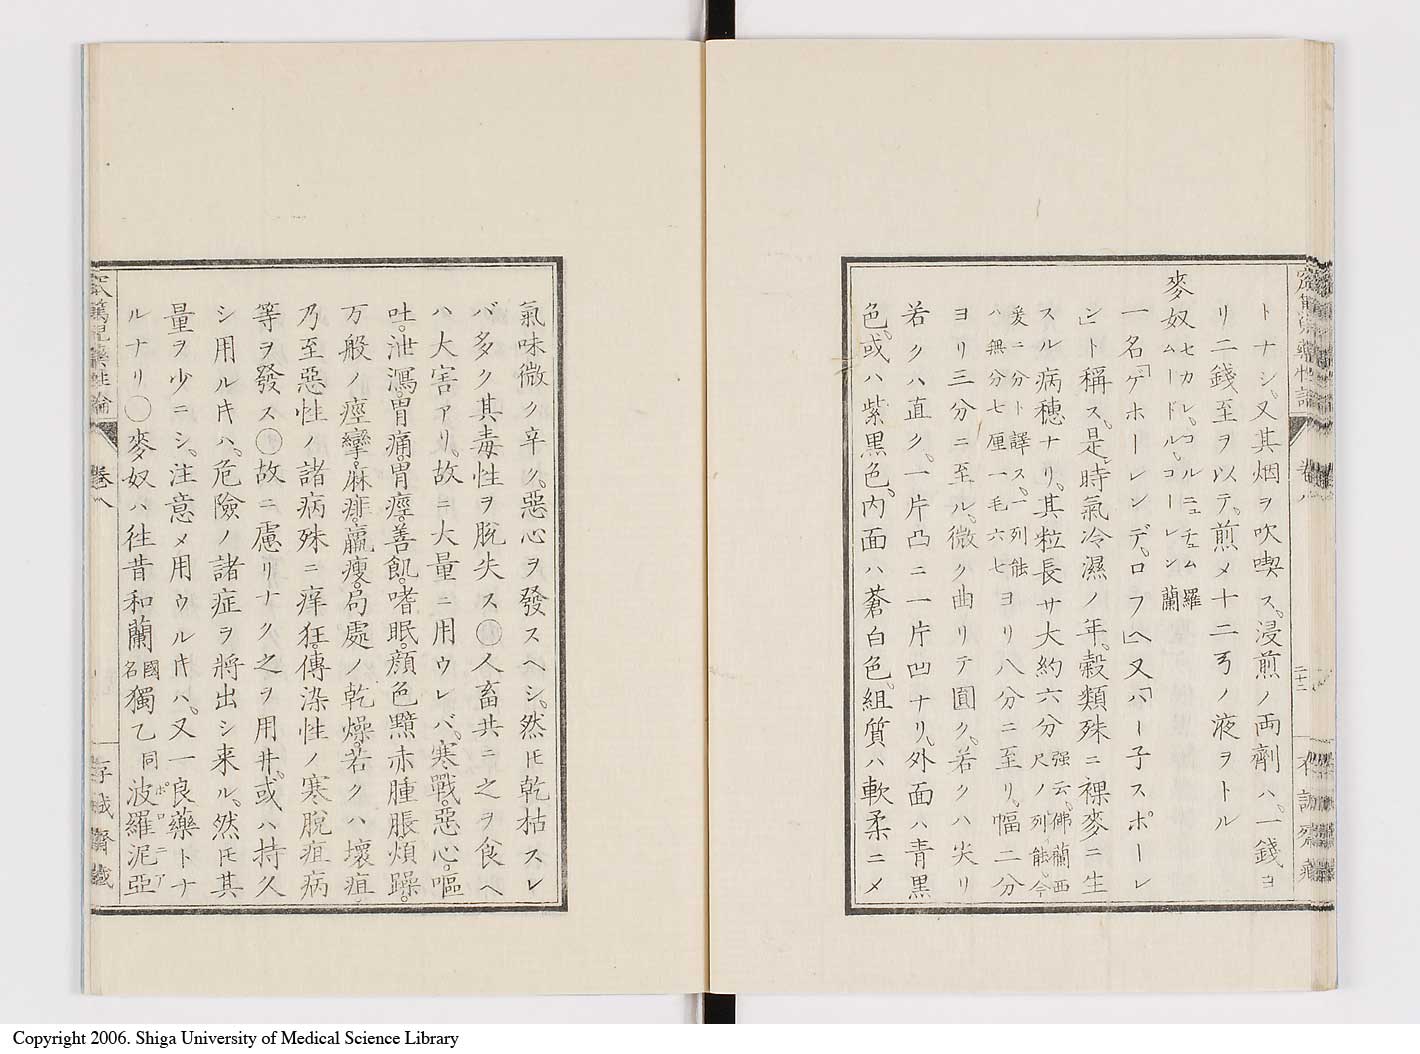 トナシ。又其烟ヲ吹喫ス。浸煎ノ両劑ハ。一錢ヨ
リ二錢ニ至ヲ以テ。煎メ十二ヲノ液ヲトル
麥奴 セカレ。コルニュチュム 羅
ムードルコーレン 蘭
一名「ゲホーレンデ。ロフ」ヘ又「ハー子スポーレ
ン」ト稱ス。是時氣冷濕ノ年。穀類殊ニ裸麥ニ生
スル病穂ナリ。其粒長サ大約六分 强云。佛蘭西
尺ノ列能。今
爰ニ分ト譯ス。一列能
ハ無分七厘一毛六七 ヨリ八分ニ至リ。幅二分
ヨリ三分ニ至ル。微ク曲リテ圓ク。若クハ尖リ
若クハ直ク。一片凸ニ一片凹ナリ。外面ハ青黒
色。或ハ紫黒色。内面ハ蒼白色。組質ハ軟柔ニメ
卷八
二十二
氣味微ク辛ク。惡心ヲ發スヘシ。然𪜈乾枯スレ
バ多ク其毒性ヲ脱失ス〇人畜共ニ之ヲ食ヘ
ハ大害アリ。故ニ大量ニ用ウレバ。寒戰。惡心。嘔
吐。泄瀉。胃痛。胃痙。善飢。嗜眠。顔色黯赤腫脹煩躁。
万般ノ痙攣。麻痱。羸瘦。局處ノ乾燥。若クハ壞疽。
乃至惡性ノ諸病殊ニ痒狂。傳染性ノ寒脱疽病
等ヲ發ス〇故ニ慮リナク之ヲ用井。或ハ持久
シ用ル𪜈ハ。危險ノ諸症ヲ將出シ来ル。然𪜈其
量ヲ少ニシ。注意メ用ウル𪜈ハ。又一良藥トナ
ルナリ〇麥奴ハ往昔和蘭 國名 獨乙 同 波羅泥亞 ポロニア
窊篤児藥性論 卷八
存誠齋藏